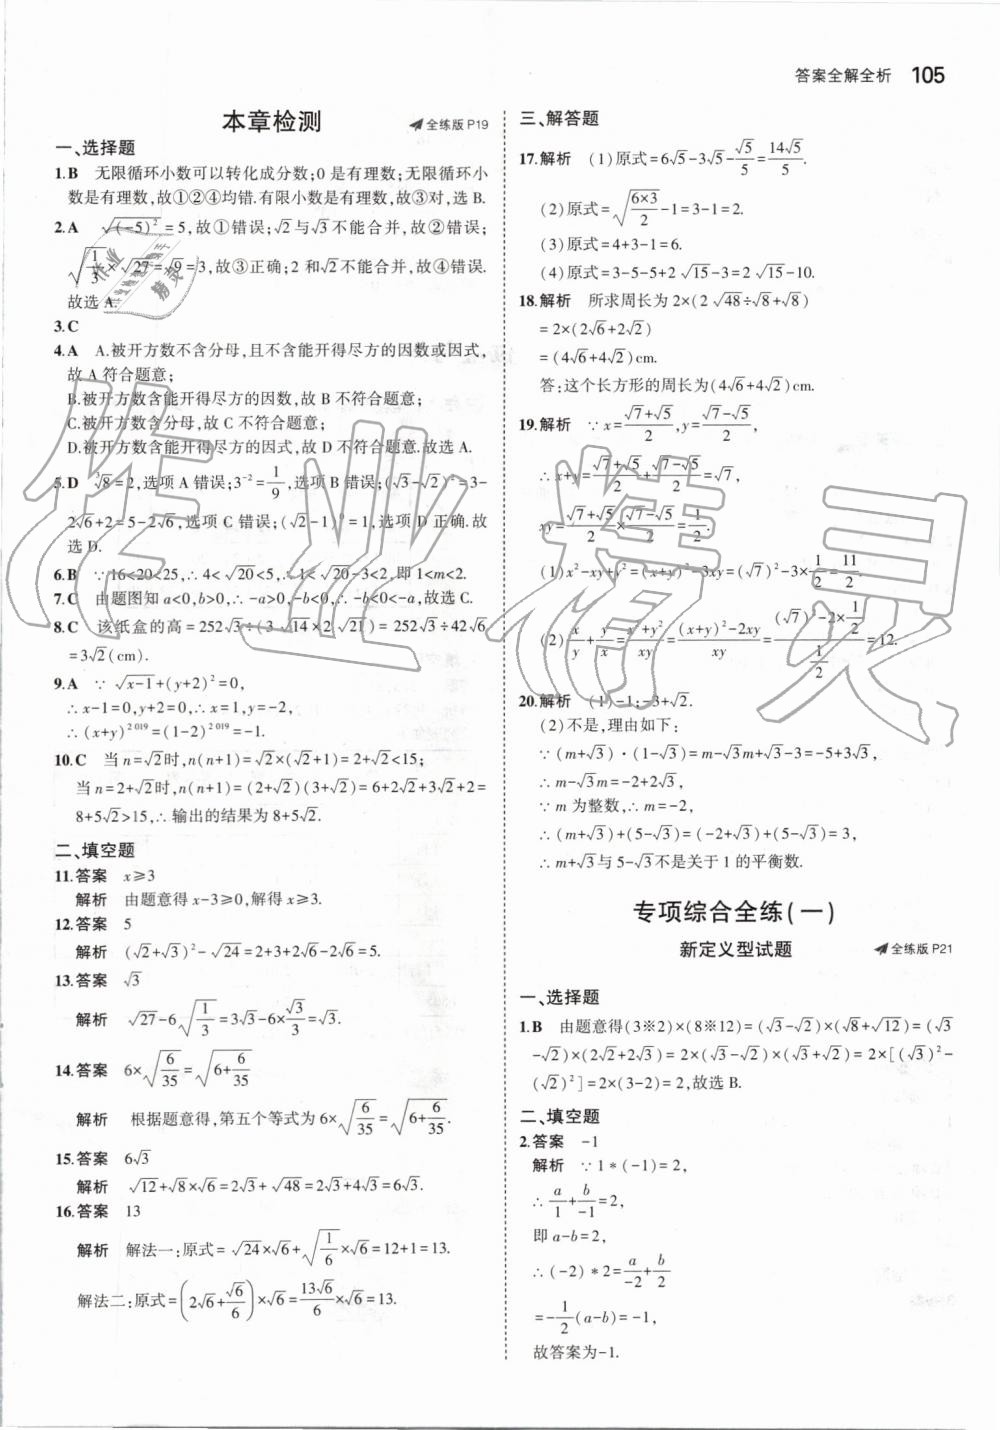 答案全解全析 105
本章检测 全练版 P19
一、选择题
1.B 无限循环小数可以转化成分数;0是有理数;无限循环小
数是有理数,故①②④均错.有限小数是有理数,故③对,选 B.
2.A √(-5)² = 5,故①错误;√2与√3不能合并,故②错误;
√(1/3)×√27=√9=3,故③正确;2 和√2不能合并,故④错误.
故选 A.
3.C
4.A A.被开方数不含分母,且不含能开得尽方的因数或因式,
故 A 符合题意;
B.被开方数含能开得尽方的因数,故 B 不符合题意;
C.被开方数含分母,故 C 不符合题意;
D.被开方数含能开得尽方的因式,故 D 不符合题意.故选 A.
5.D ∛8=2,选项 A 错误;3⁻²=1/9,选项 B 错误;(√3-√2)²=3-
2√6+2=5-2√6,选项 C 错误;(√2-1)⁰=1,选项 D 正确.故
选 D.
6.B ∵16<20<25,∴4<√20<5,∴1<√20-3<2,即 1<m<2.
7.C 由题图知 a<0,b>0,∴-a>0,-b<0,∴-b<0<-a,故选 C.
8.C 该纸盒的高=252√3÷(3√14×2√21)=252√3÷42√6
=3√2(cm).
9.A ∵√(x-1)+(y+2)²=0,
∴x-1=0,y+2=0,∴x=1,y=-2,
∴(x+y)²⁰¹⁹=(1-2)²⁰¹⁹=-1.
10.C 当 n=√2时,n(n+1)=√2×(√2+1)=2+√2<15;
当 n=2+√2时,n(n+1)=(2+√2)(3+√2)=6+2√2+3√2+2=
8+5√2>15,∴输出的结果为 8+5√2.
二、填空题
11.答案 x≥3
解析 由题意得 x-3≥0,解得 x≥3.
12.答案 5
解析 (√2+√3)²-√24=2+3+2√6-2√6=5.
13.答案 √3
解析 √27-6√(1/3)=3√3-6×√3/3=√3.
14.答案 6×√(6/35)=√(6+6/35)
解析 根据题意得,第五个等式为 6×√(6/35)=√(6+6/35).
15.答案 6√3
解析 √12+√8×√6=2√3+√48=2√3+4√3=6√3.
16.答案 13
解析 解法一:原式=√24×√6+√(1/6)×√6=12+1=13.
解法二:原式=(2√6+√6/6)×√6=13√6/6×√6=13.
三、解答题
17.解析 (1)原式=6√5-3√5-√5/5=14√5/5.
(2)原式=√(6×3/2)-1=3-1=2.
(3)原式=4+3-1=6.
(4)原式=3-5-5+2√15-3=2√15-10.
18.解析 所求周长为 2×(2√48÷√8+√8)
=2×(2√6+2√2)
=(4√6+4√2)cm.
答:这个长方形的周长为(4√6+4√2)cm.
19.解析 ∵x=(√7+√5)/2,y=(√7-√5)/2,
∴x+y=(√7+√5)/2+(√7-√5)/2=√7,
xy=(√7+√5)/2×(√7-√5)/2=1/2.
(1)x²-xy+y²=(x+y)²-3xy=(√7)²-3×1/2=11/2.
(2)x/y+y/x=(x²+y²)/xy=((x+y)²-2xy)/xy=((√7)²-2×1/2)/(1/2)=12.
20.解析 (1)-1;-3+√2.
(2)不是,理由如下:
∵(m+√3)·(1-√3)=m-√3m+√3-3=-5+3√3,
∴m-√3m=-2+2√3,
∵m 为整数,∴m=-2,
∴(m+√3)+(5-√3)=(-2+√3)+(5-√3)=3,
∴m+√3与 5-√3不是关于 1 的平衡数.
专项综合全练(一)
新定义型试题 全练版 P21
一、选择题
1.B 由题意得(3※2)×(8※12)=(√3-√2)×(√8+√12)=(√3
-√2)×(2√2+2√3)=2×(√3-√2)×(√3+√2)=2×[(√3)²-
(√2)²]=2×(3-2)=2,故选 B.
二、填空题
2.答案 -1
解析 ∵1*(-1)=2,
∴a/1+b/-1=2,
即 a-b=2,
∴(-2)*2=a/-2+b/2
=-1/2(a-b)=-1,
故答案为-1.
作业精灵